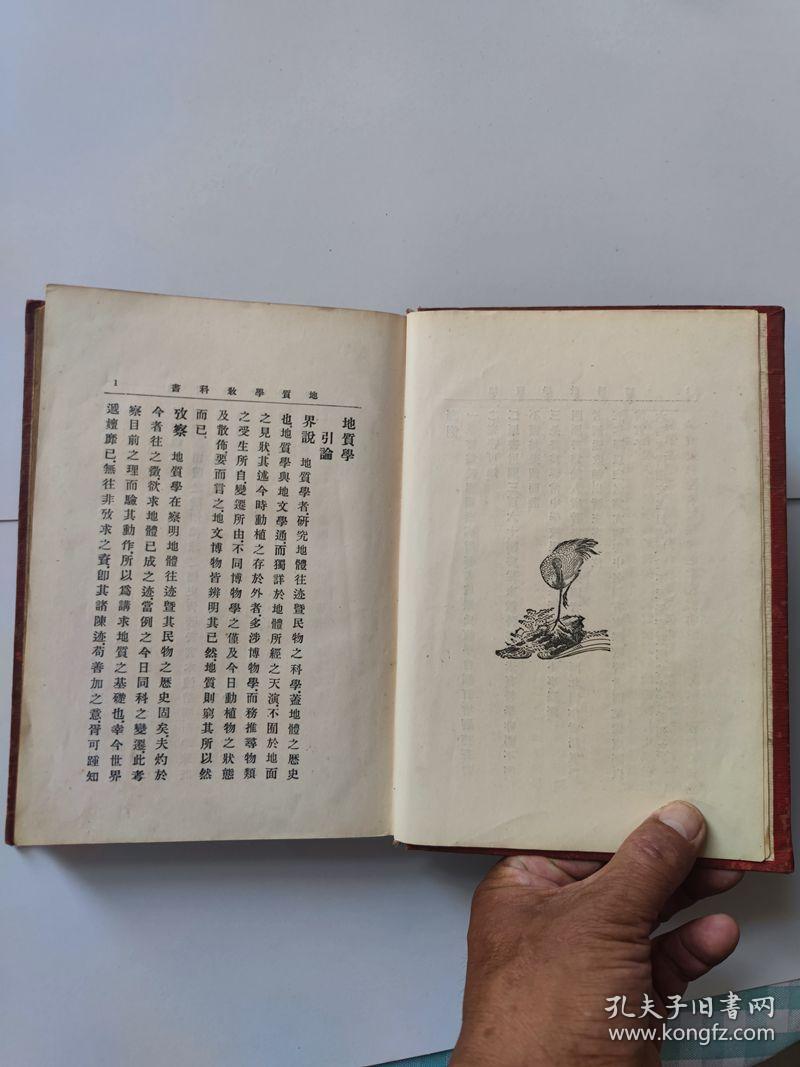 地質學教科書
1
地質學
引論
界說　地質學者,研究地體往迹暨民物之科學,蓋地體之歷史
也,地質學與地文學通,而獨詳於地體所經之天演,不囿於地面
之見狀,其述今時動植之存於外者,多涉博物學,而務推尋物類
之受生所自,變遷所由,不同博物學之僅及今日動植物之狀態
及散佈,要而言之,地文博物皆辨明其已然,地質則窮其所以然
而已.
攷察　地質學在察明地體往迹暨其民物之歷史固矣,夫灼於
今者往之徵,欲求地體已成之迹,當例之今日同科之變遷,此考
察目前之理而驗其動作,所以爲講求地質之基礎也,幸今世界
遞嬗靡已,無往非攷求之資,卽其諸陳迹,苟善加之意,胥可踵知
孔夫子旧书网
www.kongfz.com